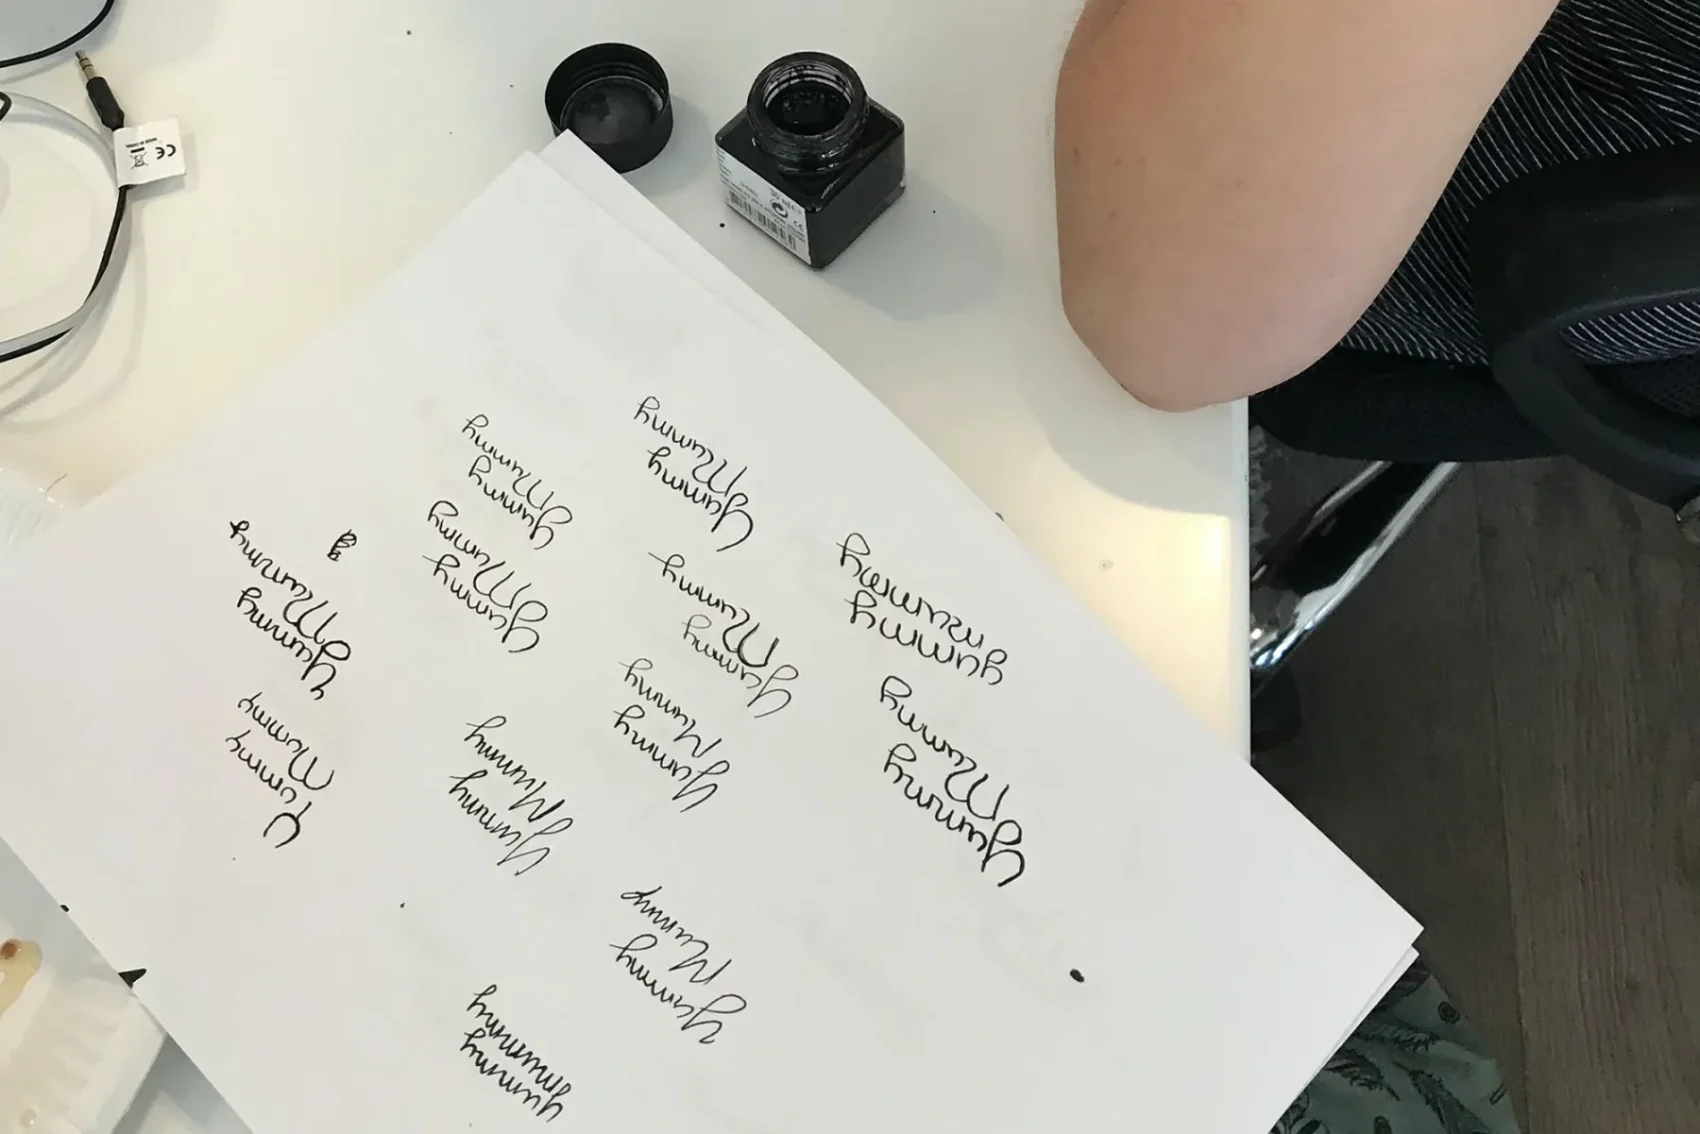 Yummy
Mummy
yummy
mummy
Yummy
Mummy
Yummy
Mummy
Yummy
Mummy
Yummy
Mummy
yummy
mummy
Yummy
Mummy
Yummy
Mummy
Yummy
Mummy
Yummy
Mummy
Yummy
Mummy
CE